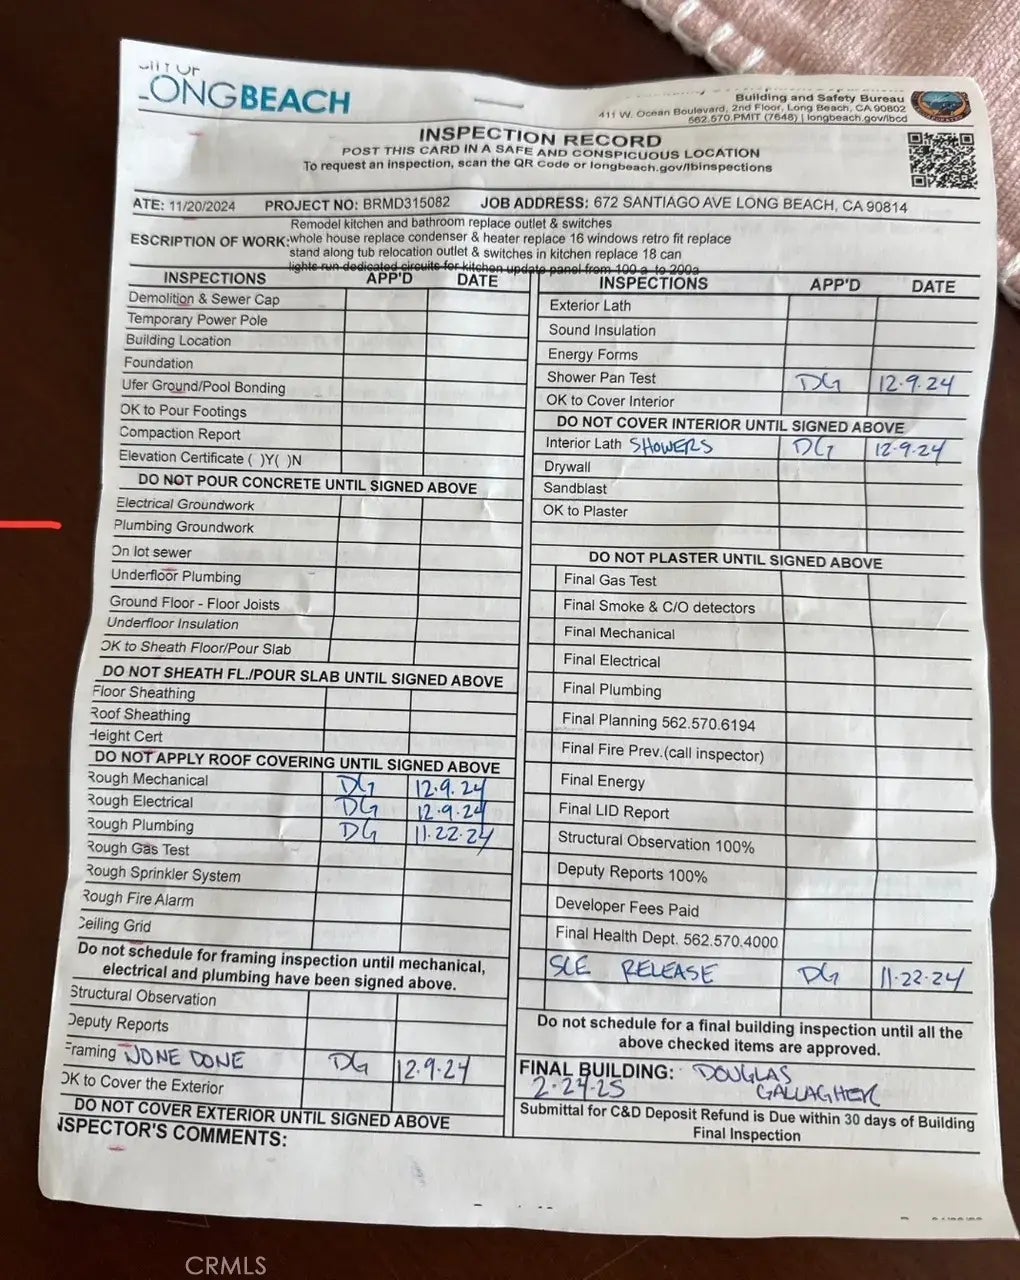 CITY OF
LONGBEACH
Building and Safety Bureau
411 W. Ocean Boulevard, 2nd Floor, Long Beach, CA 90802
562.570.PMIT (7648) | longbeach.gov/lbcd
INSPECTION RECORD
POST THIS CARD IN A SAFE AND CONSPICUOUS LOCATION
To request an inspection, scan the QR Code or longbeach.gov/lbinspections
ATE: 11/20/2024 PROJECT NO: BRMD315082 JOB ADDRESS: 672 SANTIAGO AVE LONG BEACH, CA 90814
Remodel kitchen and bathroom replace outlet & switches
ESCRIPTION OF WORK: whole house replace condenser & heater replace 16 windows retro fit replace
stand along tub relocation outlet & switches in kitchen replace 18 can
lights run dedicated circuits for kitchen update panel from 100 a to 200a
INSPECTIONS APP'D DATE
Demolition & Sewer Cap
Temporary Power Pole
Building Location
Foundation
Ufer Ground/Pool Bonding
OK to Pour Footings
Compaction Report
Elevation Certificate ( )Y( )N
DO NOT POUR CONCRETE UNTIL SIGNED ABOVE
Electrical Groundwork
Plumbing Groundwork
On lot sewer
Underfloor Plumbing
Ground Floor - Floor Joists
Underfloor Insulation
OK to Sheath Floor/Pour Slab
DO NOT SHEATH FL./POUR SLAB UNTIL SIGNED ABOVE
Floor Sheathing
Roof Sheathing
Height Cert
DO NOT APPLY ROOF COVERING UNTIL SIGNED ABOVE
Rough Mechanical DG 12.9.24
Rough Electrical DG 12.9.24
Rough Plumbing DG 11.22.24
Rough Gas Test
Rough Sprinkler System
Rough Fire Alarm
Ceiling Grid
Do not schedule for framing inspection until mechanical,
electrical and plumbing have been signed above.
Structural Observation
Deputy Reports
Framing NONE DONE DG 12.9.24
OK to Cover the Exterior
DO NOT COVER EXTERIOR UNTIL SIGNED ABOVE
NSPECTOR'S COMMENTS:
INSPECTIONS APP'D DATE
Exterior Lath
Sound Insulation
Energy Forms
Shower Pan Test DG 12.9.24
OK to Cover Interior
DO NOT COVER INTERIOR UNTIL SIGNED ABOVE
Interior Lath SHOWERS DG 12.9.24
Drywall
Sandblast
OK to Plaster
DO NOT PLASTER UNTIL SIGNED ABOVE
Final Gas Test
Final Smoke & C/O detectors
Final Mechanical
Final Electrical
Final Plumbing
Final Planning 562.570.6194
Final Fire Prev.(call inspector)
Final Energy
Final LID Report
Structural Observation 100%
Deputy Reports 100%
Developer Fees Paid
Final Health Dept. 562.570.4000
SCE RELEASE DG 11.22.24
Do not schedule for a final building inspection until all the
above checked items are approved.
FINAL BUILDING: DOUGLAS
2.24.25 GALLAGHER
Submittal for C&D Deposit Refund is Due within 30 days of Building
Final Inspection
CRMLS